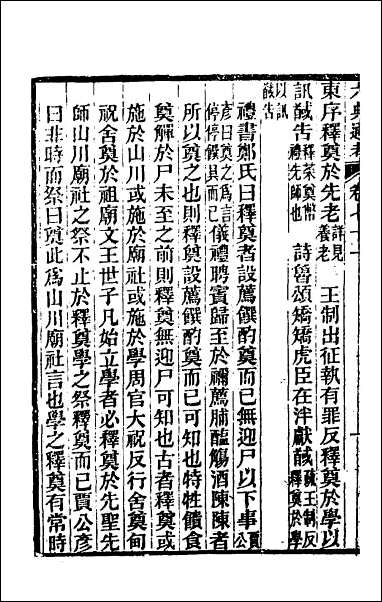 典通考 卷七十
東序釋奠於先老詳見養老 王制出征執有罪反釋奠於學以
訊馘告釋菜奠幣禮先師也 詩魯頌矯矯虎臣在泮獻馘疏王制反釋奠於學
以訊馘告
禮書鄭氏曰釋奠者設薦饌酌奠而已無迎尸以下事賈公
彥曰奠之爲言停停饌具而已儀禮聘賓歸至於禰薦脯醢觴酒陳陳者
所以奠之也則釋奠設薦饌酌奠而已可知也特牲饋食
奠觶於尸未至之前則釋奠無迎尸可知也古者釋奠或
施於山川或施於廟社或施於學周官大祝反行舍奠甸
祝舍奠於祖廟文王世子凡始立學者必釋奠於先聖先
師山川廟社之祭不止於釋奠學之祭釋奠而已賈公彥
曰非時而祭曰奠此爲山川廟社言也學之釋奠有常時